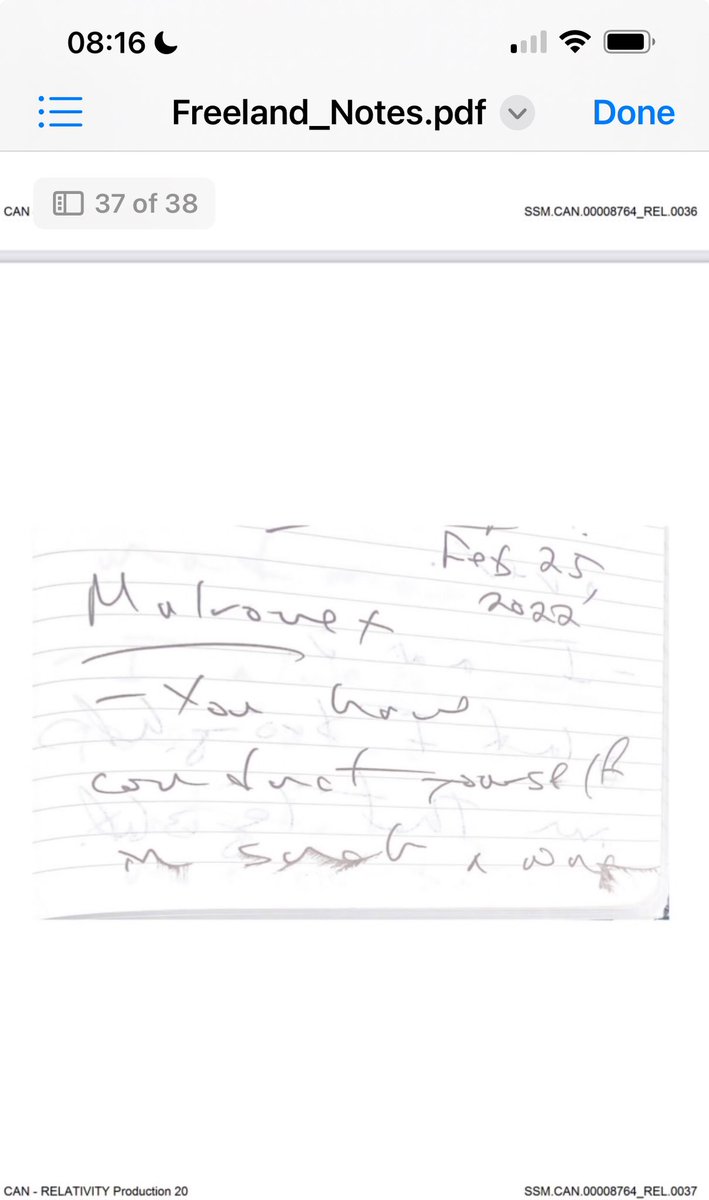 08:16
Freeland_Notes.pdf
Done
37 of 38
CAN
SSM.CAN.00008764_REL.0036
Feb 25,
2022
Mulroney
- You have
conduct yourself
in such a way
CAN - RELATIVITY Production 20
SSM.CAN.00008764_REL.0037